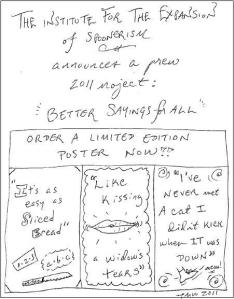 THE INSTITUTE FOR THE EXPANSION
of SPOONERISM
announces a prew
2011 noject:
"BETTER SAYINGS for ALL"
ORDER A LIMITED EDITION
POSTER NOW!!
"It's as
easy as
Sliced
Bread"
1-2-3
a-b-c
"Like
Kissing
a widow's
tears"
"I've
NEVER met
A cat I
Didn't Kick
when IT was
DOWN"
2011